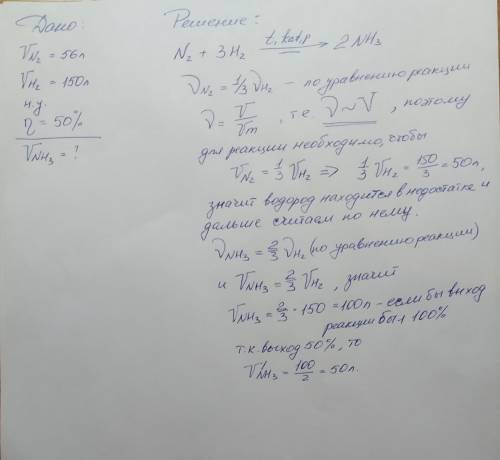 Дано:
V_N₂ = 56л
V_H₂ = 150л
н.у.
η = 50%
V_NH₃ = ?
Решение:
N₂ + 3H₂ —t, kat, p→ 2NH₃
ν_N₂ = 1/3 ν_H₂ – по уравнению реакции
ν = V/Vm, т.е. ν ~ V, поэтому
для реакции необходимо, чтобы
V_N₂ = 1/3 V_H₂ => 1/3 V_H₂ = 150/3 = 50л,
значит водород находится в недостатке и
дальше считаем по нему.
ν_NH₃ = 2/3 ν_H₂ (по уравнению реакции)
и V_NH₃ = 2/3 V_H₂, значит
V_NH₃ = 2/3 · 150 = 100л – если бы выход
реакции был 100%
т.к. выход 50%, то
V'_NH₃ = 100/2 = 50л.